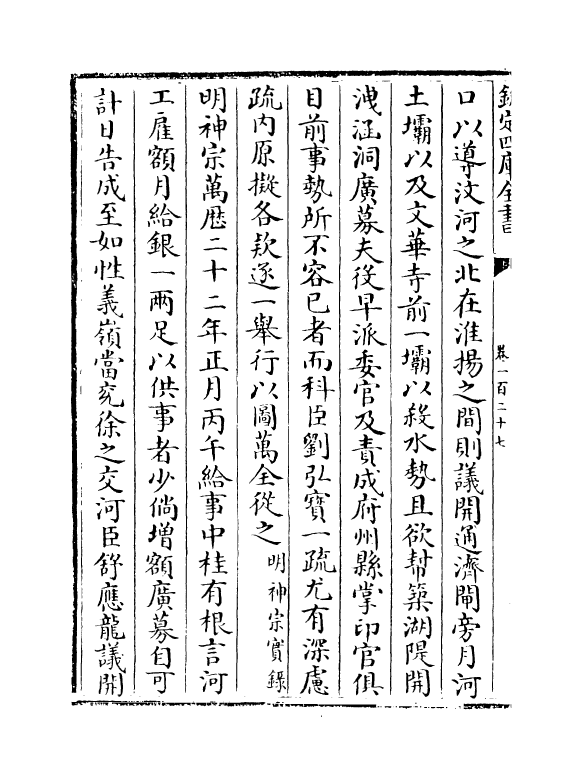 欽定四庫全書
卷一百二十七
口以導汶河之北在淮揚之間則議開通濟閘旁月河
土壩以及文華寺前一壩以殺水勢且欲幫築湖隄開
洩涵洞廣募夫役早派委官及責成府州縣掌印官俱
目前事勢所不容已者而科臣劉弘寳一疏尤有深慮
疏内原擬各欵逐一舉行以圖萬全從之明神宗實錄
明神宗萬歴二十二年正月丙午給事中桂有根言河
工雇額月給銀一兩足以供事者少倘增額廣募自可
計日告成至如性義嶺當兖徐之交河臣舒應龍議開